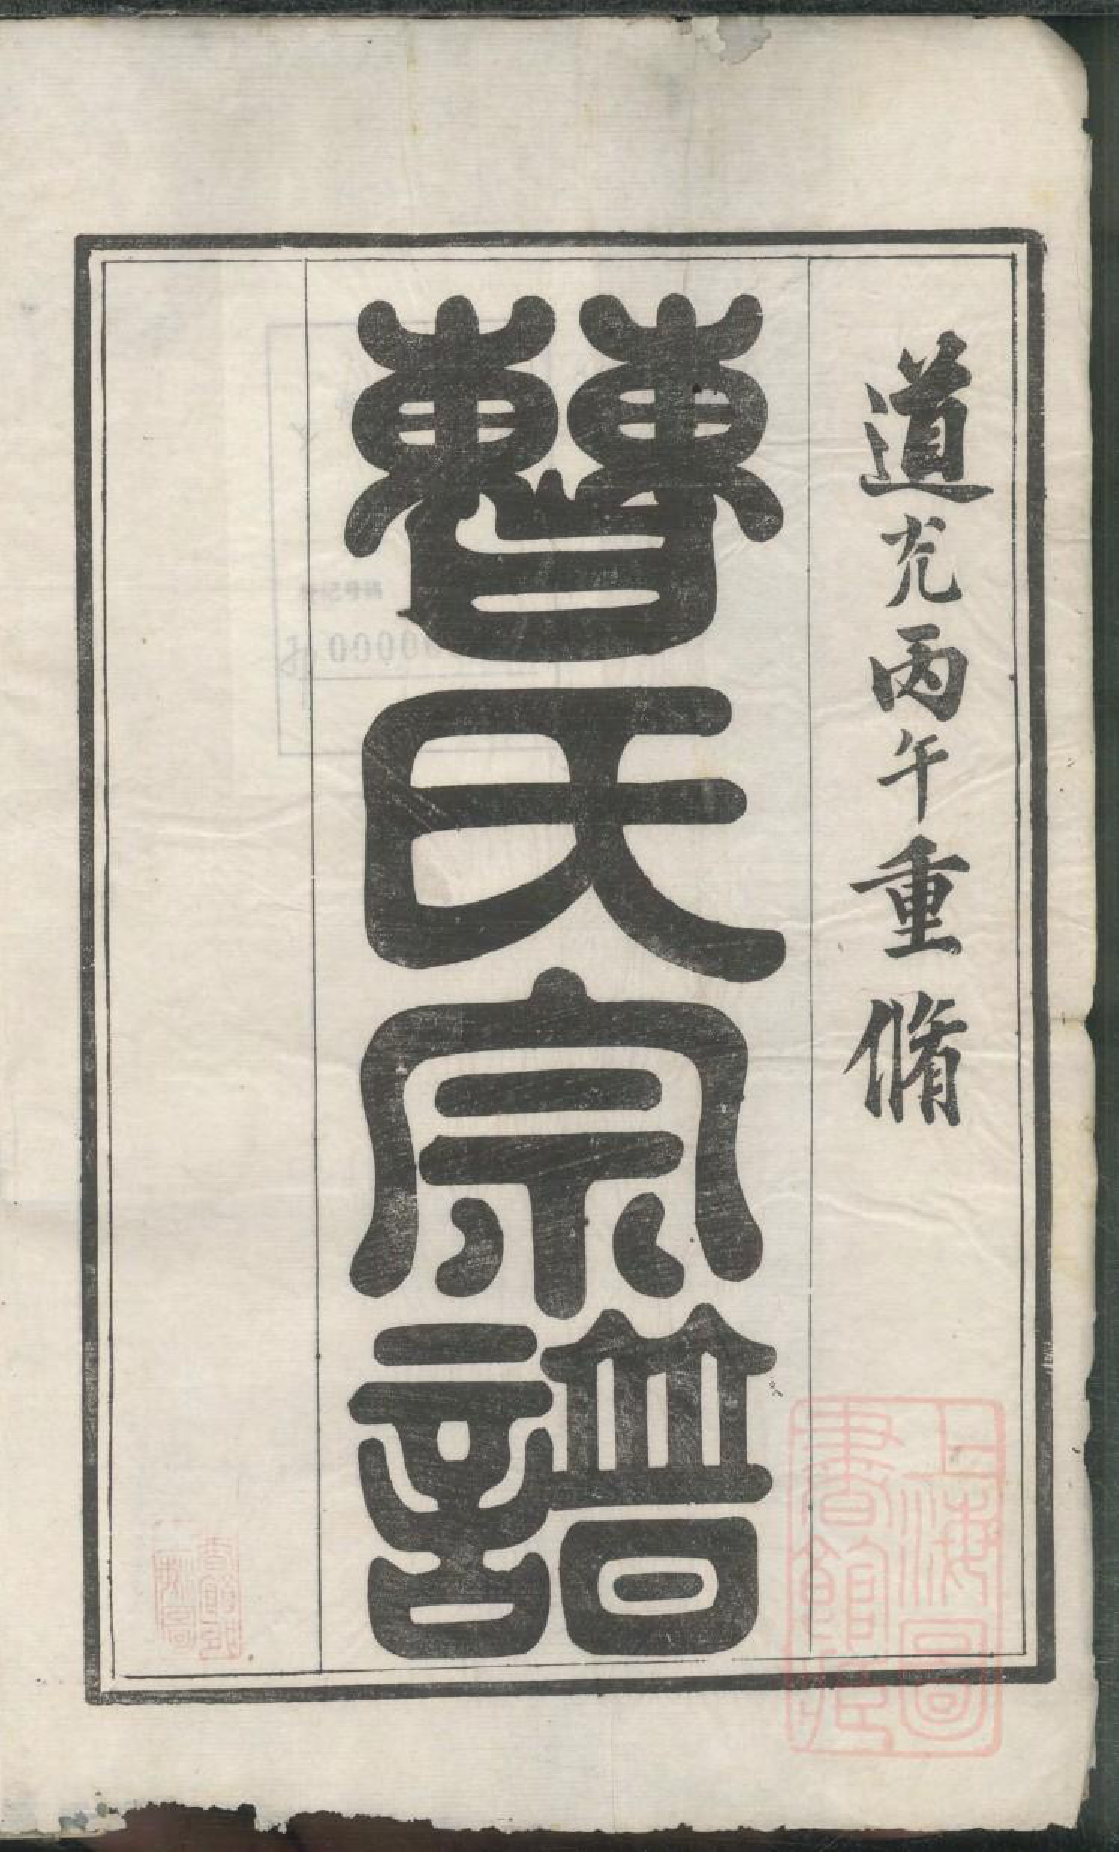 道光丙午重脩
曹氏宗譜
上海圖書館藏
00000